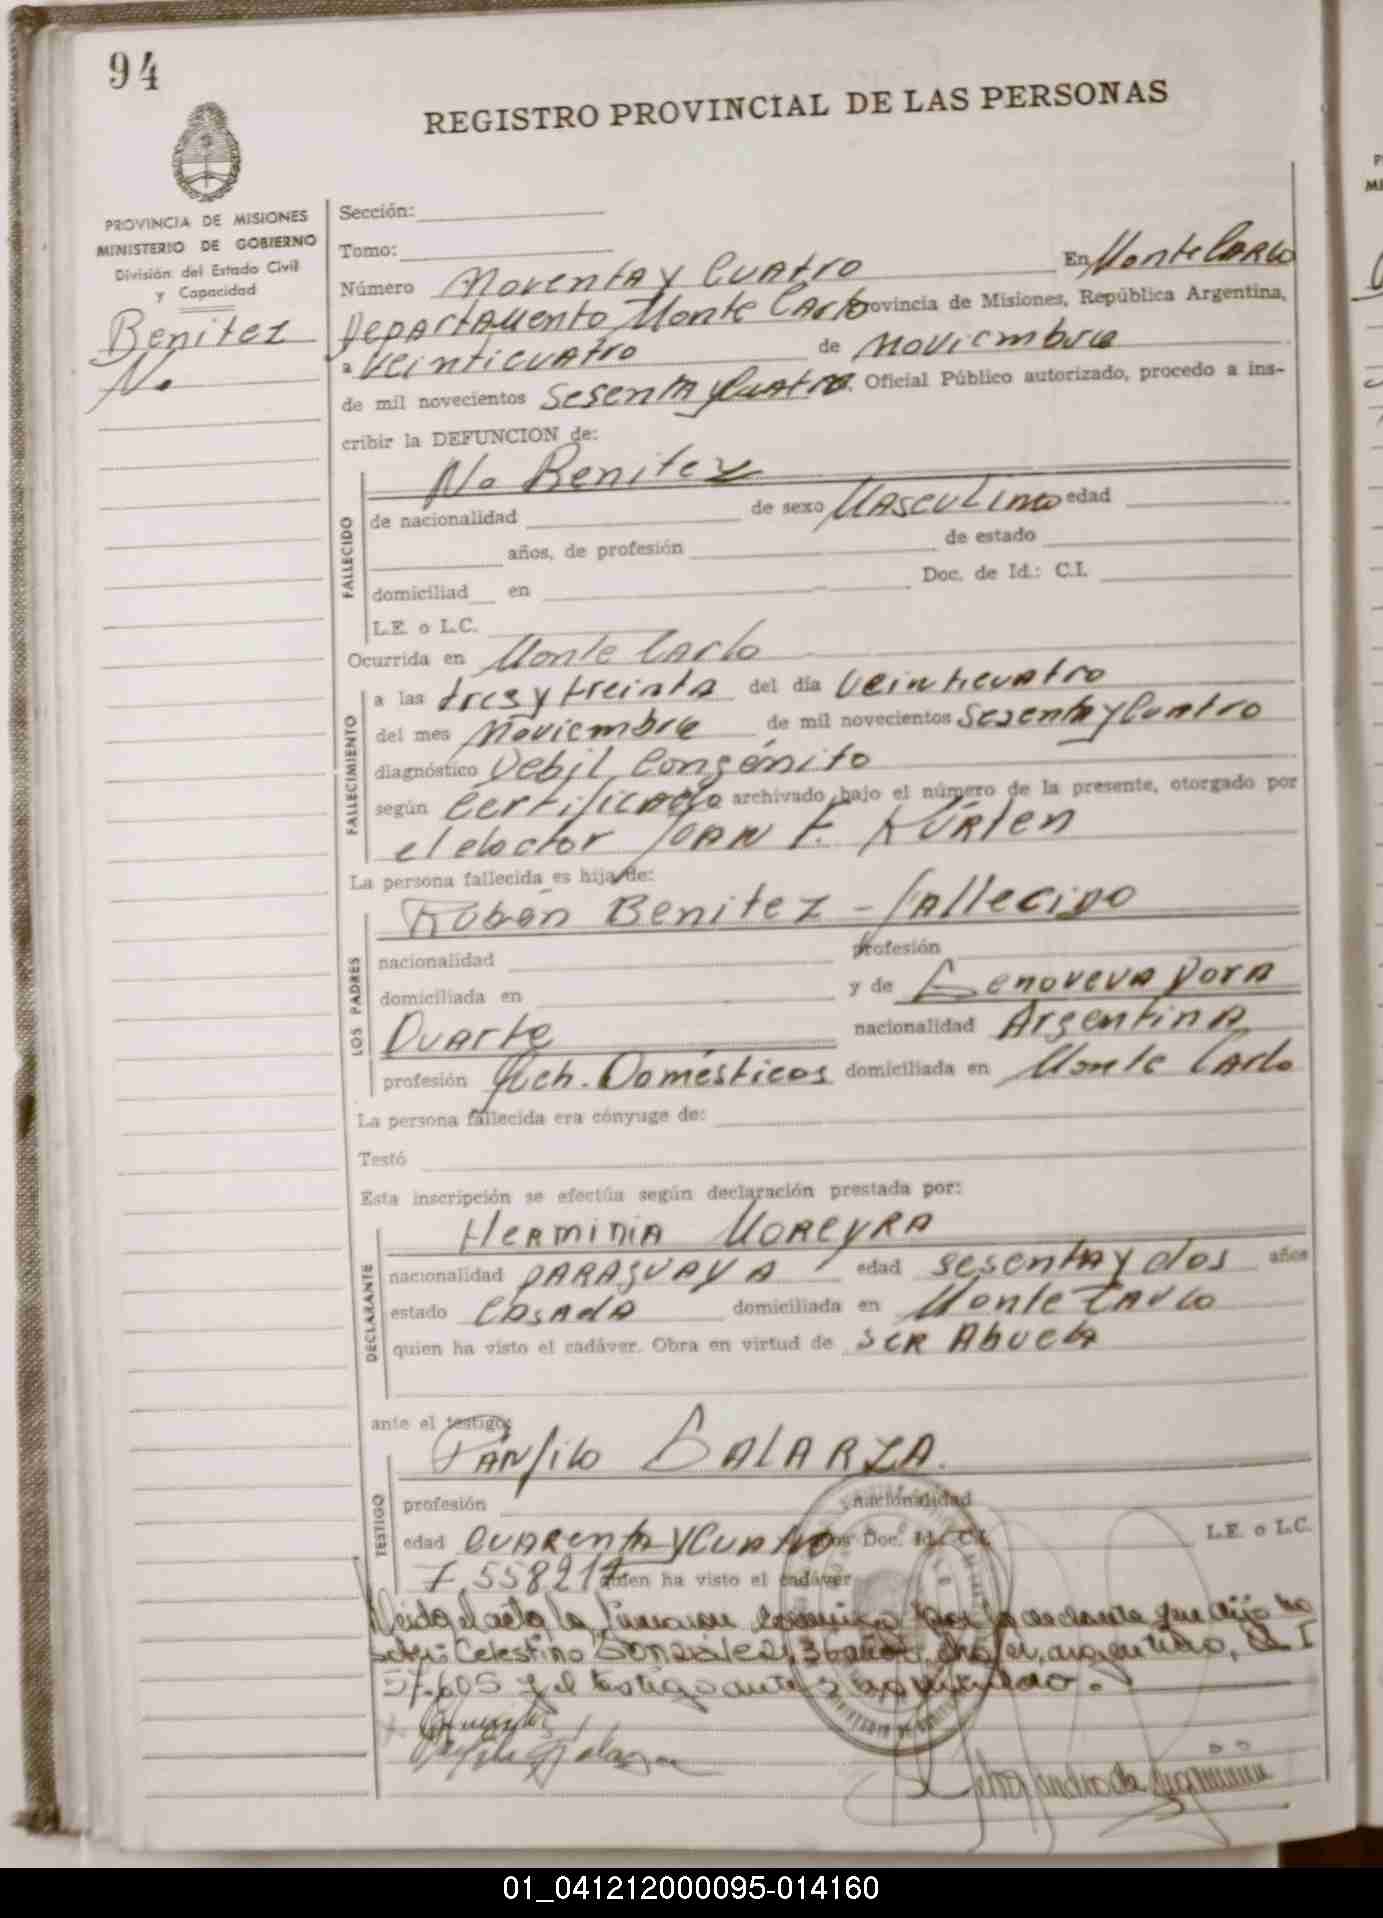 94
REGISTRO PROVINCIAL DE LAS PERSONAS
PROVINCIA DE MISIONES
MINISTERIO DE GOBIERNO
División del Estado Civil
y Capacidad
Benitez
No
Sección:
Tomo:
Número Noventa y Cuatro En Monte Carlo
Departamento Monte Carlo Provincia de Misiones, República Argentina,
a Veinticuatro de Noviembre
de mil novecientos Sesenta y Cuatro, Oficial Público autorizado, procedo a ins-
cribir la DEFUNCION de:
No Benitez
FALLECIDO
de nacionalidad de sexo Masculino edad
años, de profesión de estado
domiciliad en Doc. de Id.: C.I.
L.E. o L.C.
Ocurrida en Monte Carlo
FALLECIMIENTO
a las tres y treinta del día Veinticuatro
del mes Noviembre de mil novecientos Sesenta y Cuatro
diagnóstico Debil Congénito
según Certificado archivado bajo el número de la presente, otorgado por
el doctor Juan F. Kürten
La persona fallecida es hija de:
LOS PADRES
Rubén Benitez - fallecido
nacionalidad profesión
domiciliada en y de Genoveva Dora
Duarte nacionalidad Argentina
profesión Queh. Domésticos domiciliada en Monte Carlo
La persona fallecida era cónyuge de:
Testó
Esta inscripción se efectúa según declaración prestada por:
DECLARANTE
Herminia Moreyra
nacionalidad paraguaya edad sesenta y dos años
estado Casada domiciliada en Monte Carlo
quien ha visto el cadáver. Obra en virtud de ser Abuela
ante el testigo:
TESTIGO
Pánfilo Galarza.
profesión nacionalidad
edad cuarenta y cuatro años Doc. Id.: C.I. L.E. o L.C.
7.558217 quien ha visto el cadáver
Leida el acta la firman conmigo por la declarante que dijo no
saber: Celestino González, 36 años, chofer, argentino, C I
57.605 y el testigo antes apuntado.
01_041212000095-014160